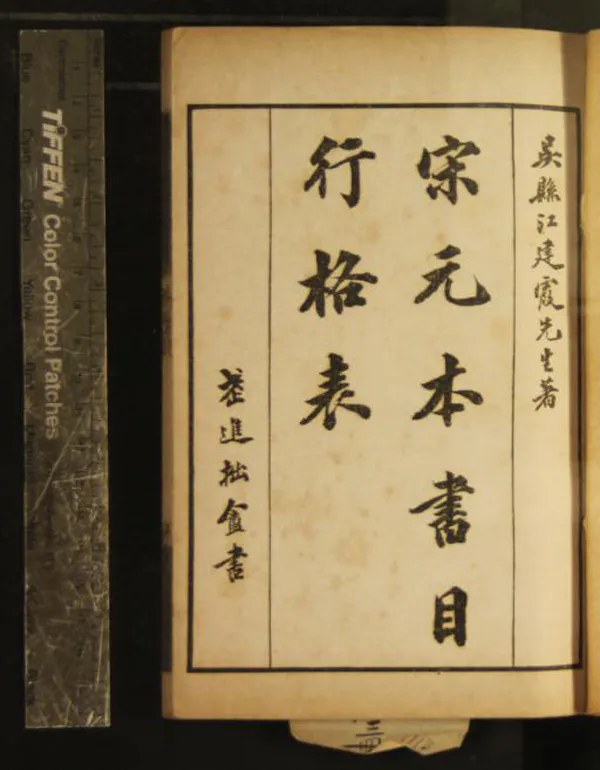 吳縣江建霞先生著
宋元本書目
行格表
武進拙盦書
TIFFEN Color Control Patches
Blue
Cyan
Green
Yellow